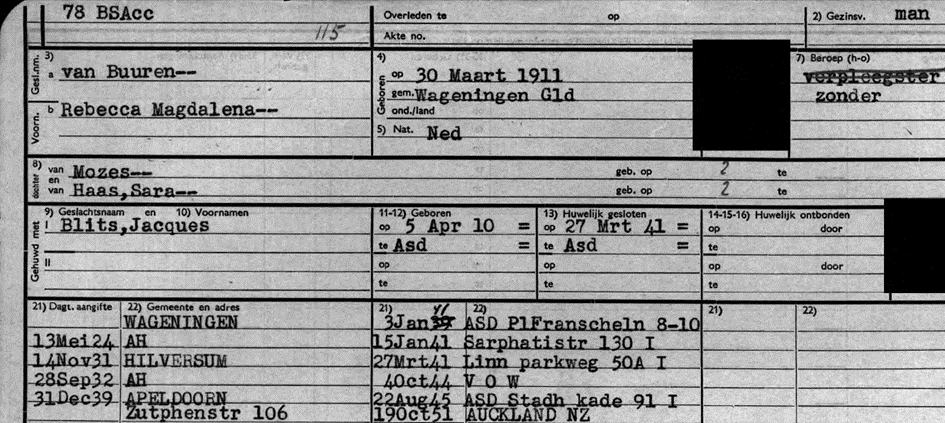 78 BSAcc
115
Overleden te op
Akte no.
2) Gezinsv. man
Gesl.nm. 3) a van Buuren--
Voorn. b Rebecca Magdalena--
4) Geboren op 30 Maart 1911
gem. Wageningen Gld
ond./land
5) Nat. Ned
7) Beroep (h-o)
verpleegster
zonder
8) dochter van Mozes-- geb. op 2 te
en van Haas,Sara-- geb. op 2 te
Gehuwd met 9) Geslachtsnaam en 10) Voornamen
I Blits,Jacques
II
11-12) Geboren
op 5 Apr 10 =
te Asd =
op
te
13) Huwelijk gesloten
op 27 Mrt 41 =
te Asd =
op
te
14-15-16) Huwelijk ontbonden
op door
te
op door
te
21) Dagt. aangifte 22) Gemeente en adres
WAGENINGEN
13Mei24 AH
14Nov31 HILVERSUM
28Sep32 AH
31Dec39 APELDOORN
Zutphenstr 106
21) 22)
41
3Jan39 ASD PlFranscheln 8-10
15Jan41 Sarphatistr 130 I
27Mrt41 Linn parkweg 50A I
4Oct44 V O W
22Aug45 ASD Stadh kade 91 I
19Oct51 AUCKLAND NZ
21) 22)